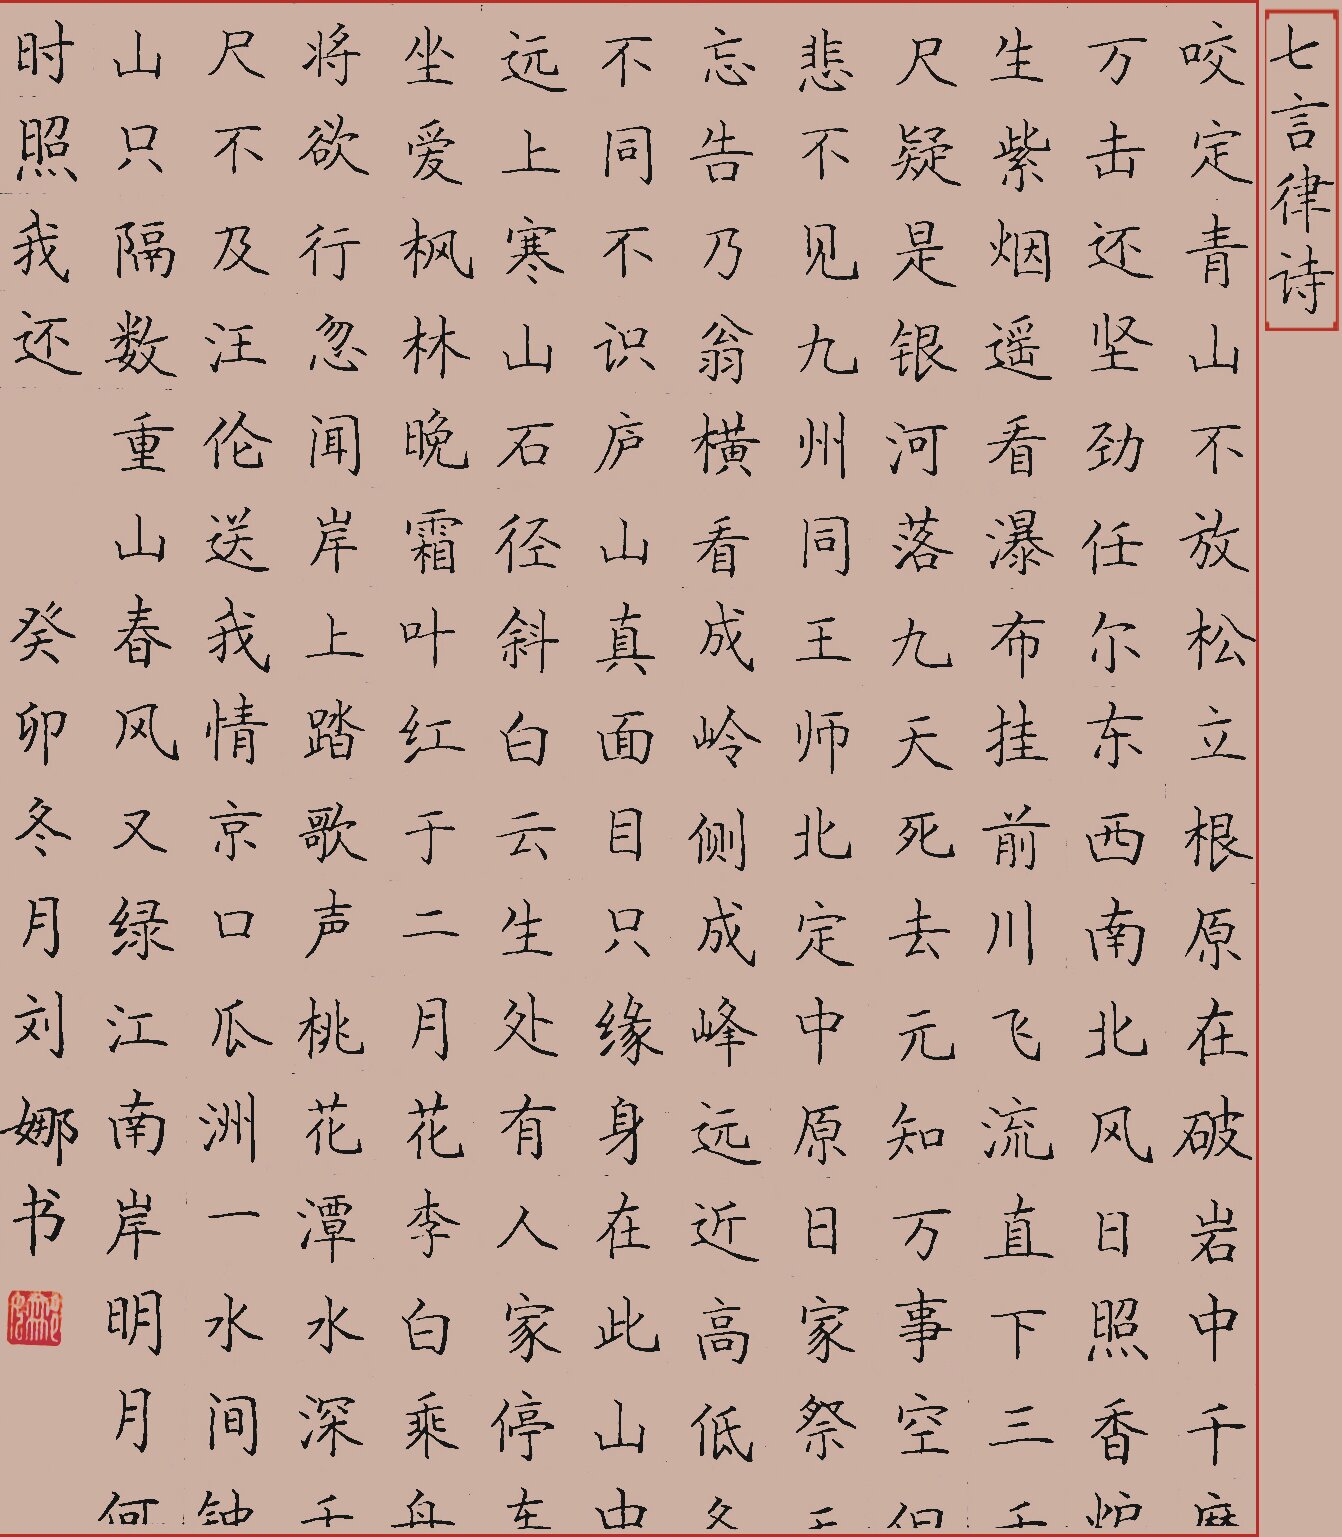 七言律诗
咬定青山不放松立根原在破岩中千磨
万击还坚劲任尔东西南北风日照香炉
生紫烟遥看瀑布挂前川飞流直下三千
尺疑是银河落九天死去元知万事空但
悲不见九州同王师北定中原日家祭无
忘告乃翁横看成岭侧成峰远近高低各
不同不识庐山真面目只缘身在此山中
远上寒山石径斜白云生处有人家停车
坐爱枫林晚霜叶红于二月花李白乘舟
将欲行忽闻岸上踏歌声桃花潭水深千
尺不及汪伦送我情京口瓜洲一水间钟
山只隔数重山春风又绿江南岸明月何
时照我还 癸卯冬月刘娜书